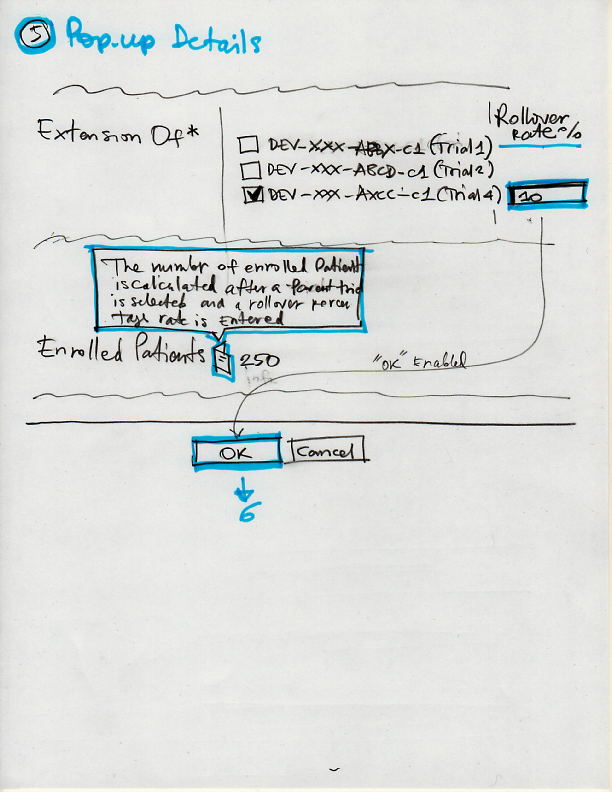 5 Pop-up Details
Extension Of*
Rollover
Rate %
DEV-XXX-ABBX-C1 (Trial 1)
DEV-XXX-ABCD-C1 (Trial 2)
DEV-XXX-AXCC-C1 (Trial 4) 10
The number of enrolled Patient
is calculated after a Parent tria
is selected and a rollover percen
tage rate is Entered
Enrolled Patients 250
"OK" Enabled
OK Cancel
6